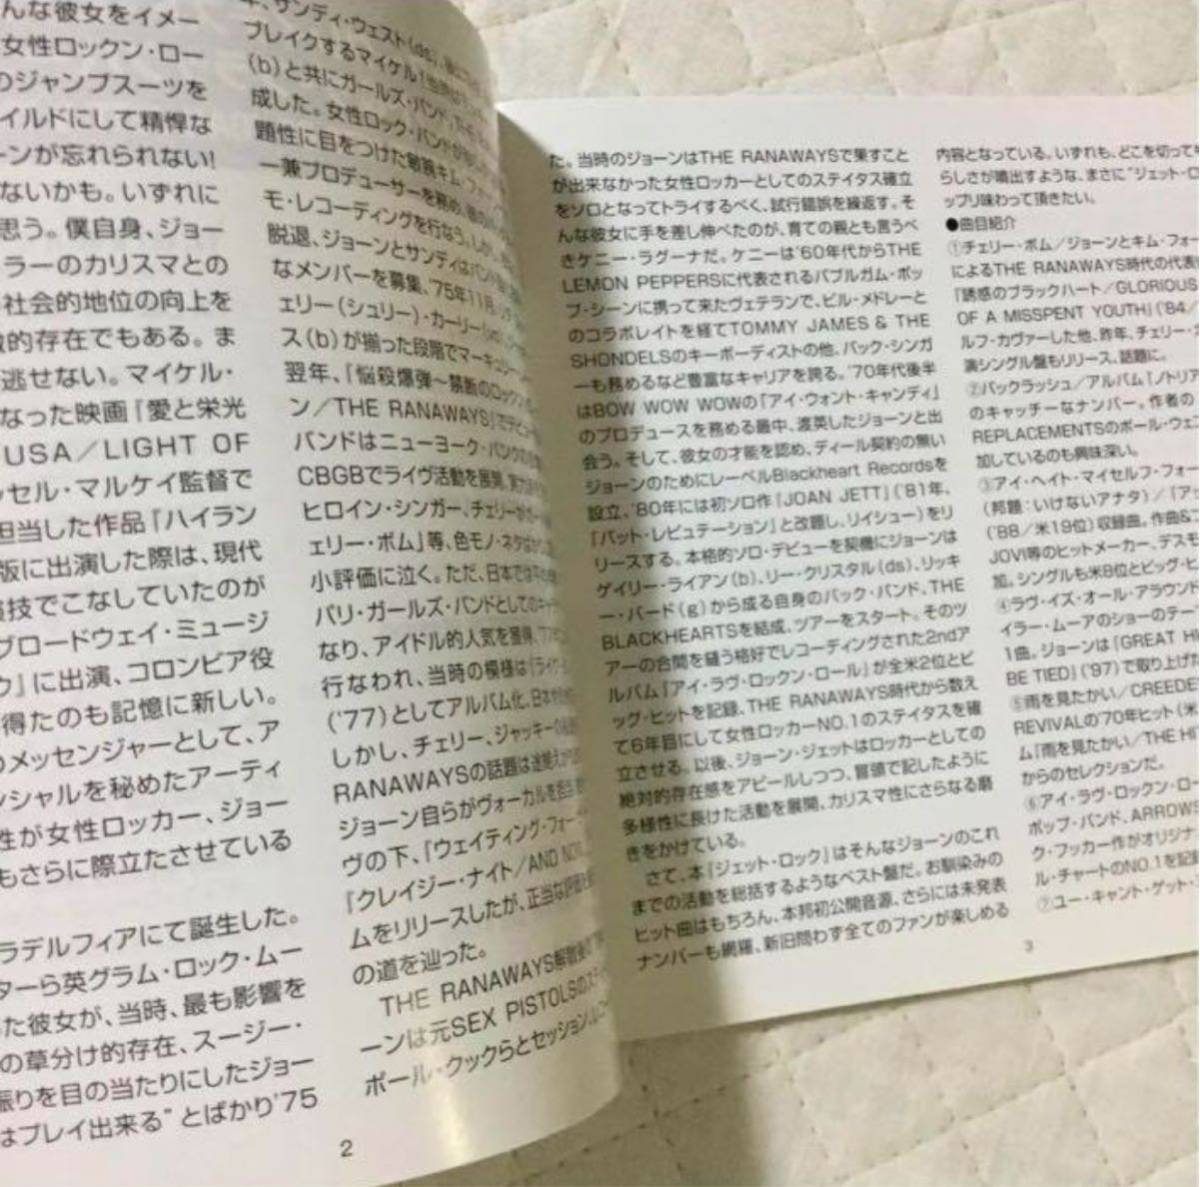 んな彼女をイメー
女性ロックン・ロー
のジャンプスーツを
イルドにして精悍な
ーンが忘れられない!
ないかも。いずれに
思う。僕自身、ジョー
ラーのカリスマとの
社会的地位の向上を
的存在でもある。ま
逃せない。マイケル・
なった映画『愛と栄光
USA/LIGHT OF
ッセル・マルケイ監督で
担当した作品『ハイラン
版に出演した際は、現代
演技でこなしていたのが
ブロードウェイ・ミュージ
ウ』に出演、コロンビア役
得たのも記憶に新しい。
のメッセンジャーとして、ア
ンシャルを秘めたアーティ
性が女性ロッカー、ジョー
もさらに際立たせている
ラデルフィアにて誕生した。
ターら英グラム・ロック・ムー
た彼女が、当時、最も影響を
の草分け的存在、スージー・
振りを目の当たりにしたジョー
はプレイ出来る" とばかり'75
サンディ・ウェスト(ds)、
ブレイクするマイケル
(b)と共にガールズ・バンド、
成した。女性ロック・バンドが
題性に目をつけた敏腕キム・フォ
ー兼プロデューサーを務め、
モ・レコーディングを行なう。しか
脱退、ジョーンとサンディはバンド
なメンバーを募集、'75年11月、
ェリー(シェリー)・カーリー
ス(b)が揃った段階でマーキュ
翌年、『悩殺爆弾〜禁断のロックン
ン/THE RANAWAYS』でデビュ
バンドはニューヨーク・パンクの
CBGBでライヴ活動を展開、
ヒロイン・シンガー、チェリーが
ェリー・ボム」等、色モノ・ネタばか
小評価に泣く。ただ、日本では
バリ・ガールズ・バンドとしての
なり、アイドル的人気を獲得、'77
行なわれ、当時の模様は『ライヴ
('77)としてアルバム化、日本
しかし、チェリー、ジャッキーの
RANAWAYSの話題は途絶え
ジョーン自らがヴォーカルを担当
ヴの下、『ウェイティング・フォー
『クレイジー・ナイト/AND NOW
ムをリリースしたが、正当な評価
の道を辿った。
THE RANAWAYS解散後
ーンは元SEX PISTOLSのスティ
ポール・クックらとセッション、
2
た。当時のジョーンはTHE RANAWAYSで果すこと
が出来なかった女性ロッカーとしてのステイタス確立
をソロとなってトライするべく、試行錯誤を繰返す。そ
んな彼女に手を差し伸べたのが、育ての親とも言うべ
きケニー・ラグーナだ。ケニーは'60年代からTHE
LEMON PEPPERSに代表されるバブルガム・ポッ
プ・シーンに携って来たヴェテランで、ビル・メドレーと
のコラボレイトを経てTOMMY JAMES & THE
SHONDELSのキーボーディストの他、バック・シンガ
ーも務めるなど豊富なキャリアを誇る。'70年代後半
はBOW WOW WOWの「アイ・ウォント・キャンディ」
のプロデュースを務める最中、渡英したジョーンと出
会う。そして、彼女の才能を認め、ディール契約の無い
ジョーンのためにレーベルBlackheart Recordsを
設立、'80年には初ソロ作『JOAN JETT』('81年、
『バット・レピュテーション』と改題し、リイシュー)をリ
リースする。本格的ソロ・デビューを契機にジョーンは
ゲイリー・ライアン(b)、リー・クリスタル(ds)、リッキ
ー・バード(g)から成る自身のバック・バンド、THE
BLACKHEARTSを結成、ツアーをスタート。そのツ
アーの合間を縫う格好でレコーディングされた2ndア
ルバム『アイ・ラヴ・ロックン・ロール』が全米2位とビ
ッグ・ヒットを記録、THE RANAWAYS時代から数え
て6年目にして女性ロッカーNO.1のステイタスを確
立させる。以後、ジョーン・ジェットはロッカーとしての
絶対的存在感をアピールしつつ、冒頭で記したように
多様性に長けた活動を展開、カリスマ性にさらなる磨
きをかけている。
さて、本『ジェット・ロック』はそんなジョーンのこれ
までの活動を総括するようなベスト盤だ。お馴染みの
ヒット曲はもちろん、本邦初公開音源、さらには未発表
ナンバーも網羅、新旧問わず全てのファンが楽しめる
内容となっている。いずれも、どこを切っても
らしさが噴出すような、まさに"ジェット・ロ
ップリ味わって頂きたい。
●曲目紹介
①チェリー・ボム/ジョーンとキム・フォー
によるTHE RANAWAYS時代の代表
『誘惑のブラックハート/GLORIOUS
OF A MISSPENT YOUTH』('84/
ルフ・カヴァーした他、昨年、チェリー・
演シングル盤もリリース、話題に。
②バックラッシュ/アルバム『ノトリア
のキャッチーなナンバー。作者の
REPLACEMENTSのポール・ウェ
加しているのも興味深い。
③アイ・ヘイト・マイセルフ・フォー
(邦題:いけないアナタ)/『ア
('88/米19位)収録曲。作曲&
JOVI等のヒットメーカー、デスモ
加。シングルも米8位とビッグ・ヒ
④ラヴ・イズ・オール・アラウンド
イラー・ムーアのショーのテー
1曲。ジョーンは『GREAT HI
BE TIED』('97)で取り上げた
⑤雨を見たかい/CREEDE
REVIVALの'70年ヒット(米
ム『雨を見たかい/THE HIT
からのセレクションだ。
⑥アイ・ラヴ・ロックン・ロー
ポップ・バンド、ARROWS
ク・フッカー作がオリジナ
ル・チャートのNO.1を記録
⑦ユー・キャント・ゲット・
3